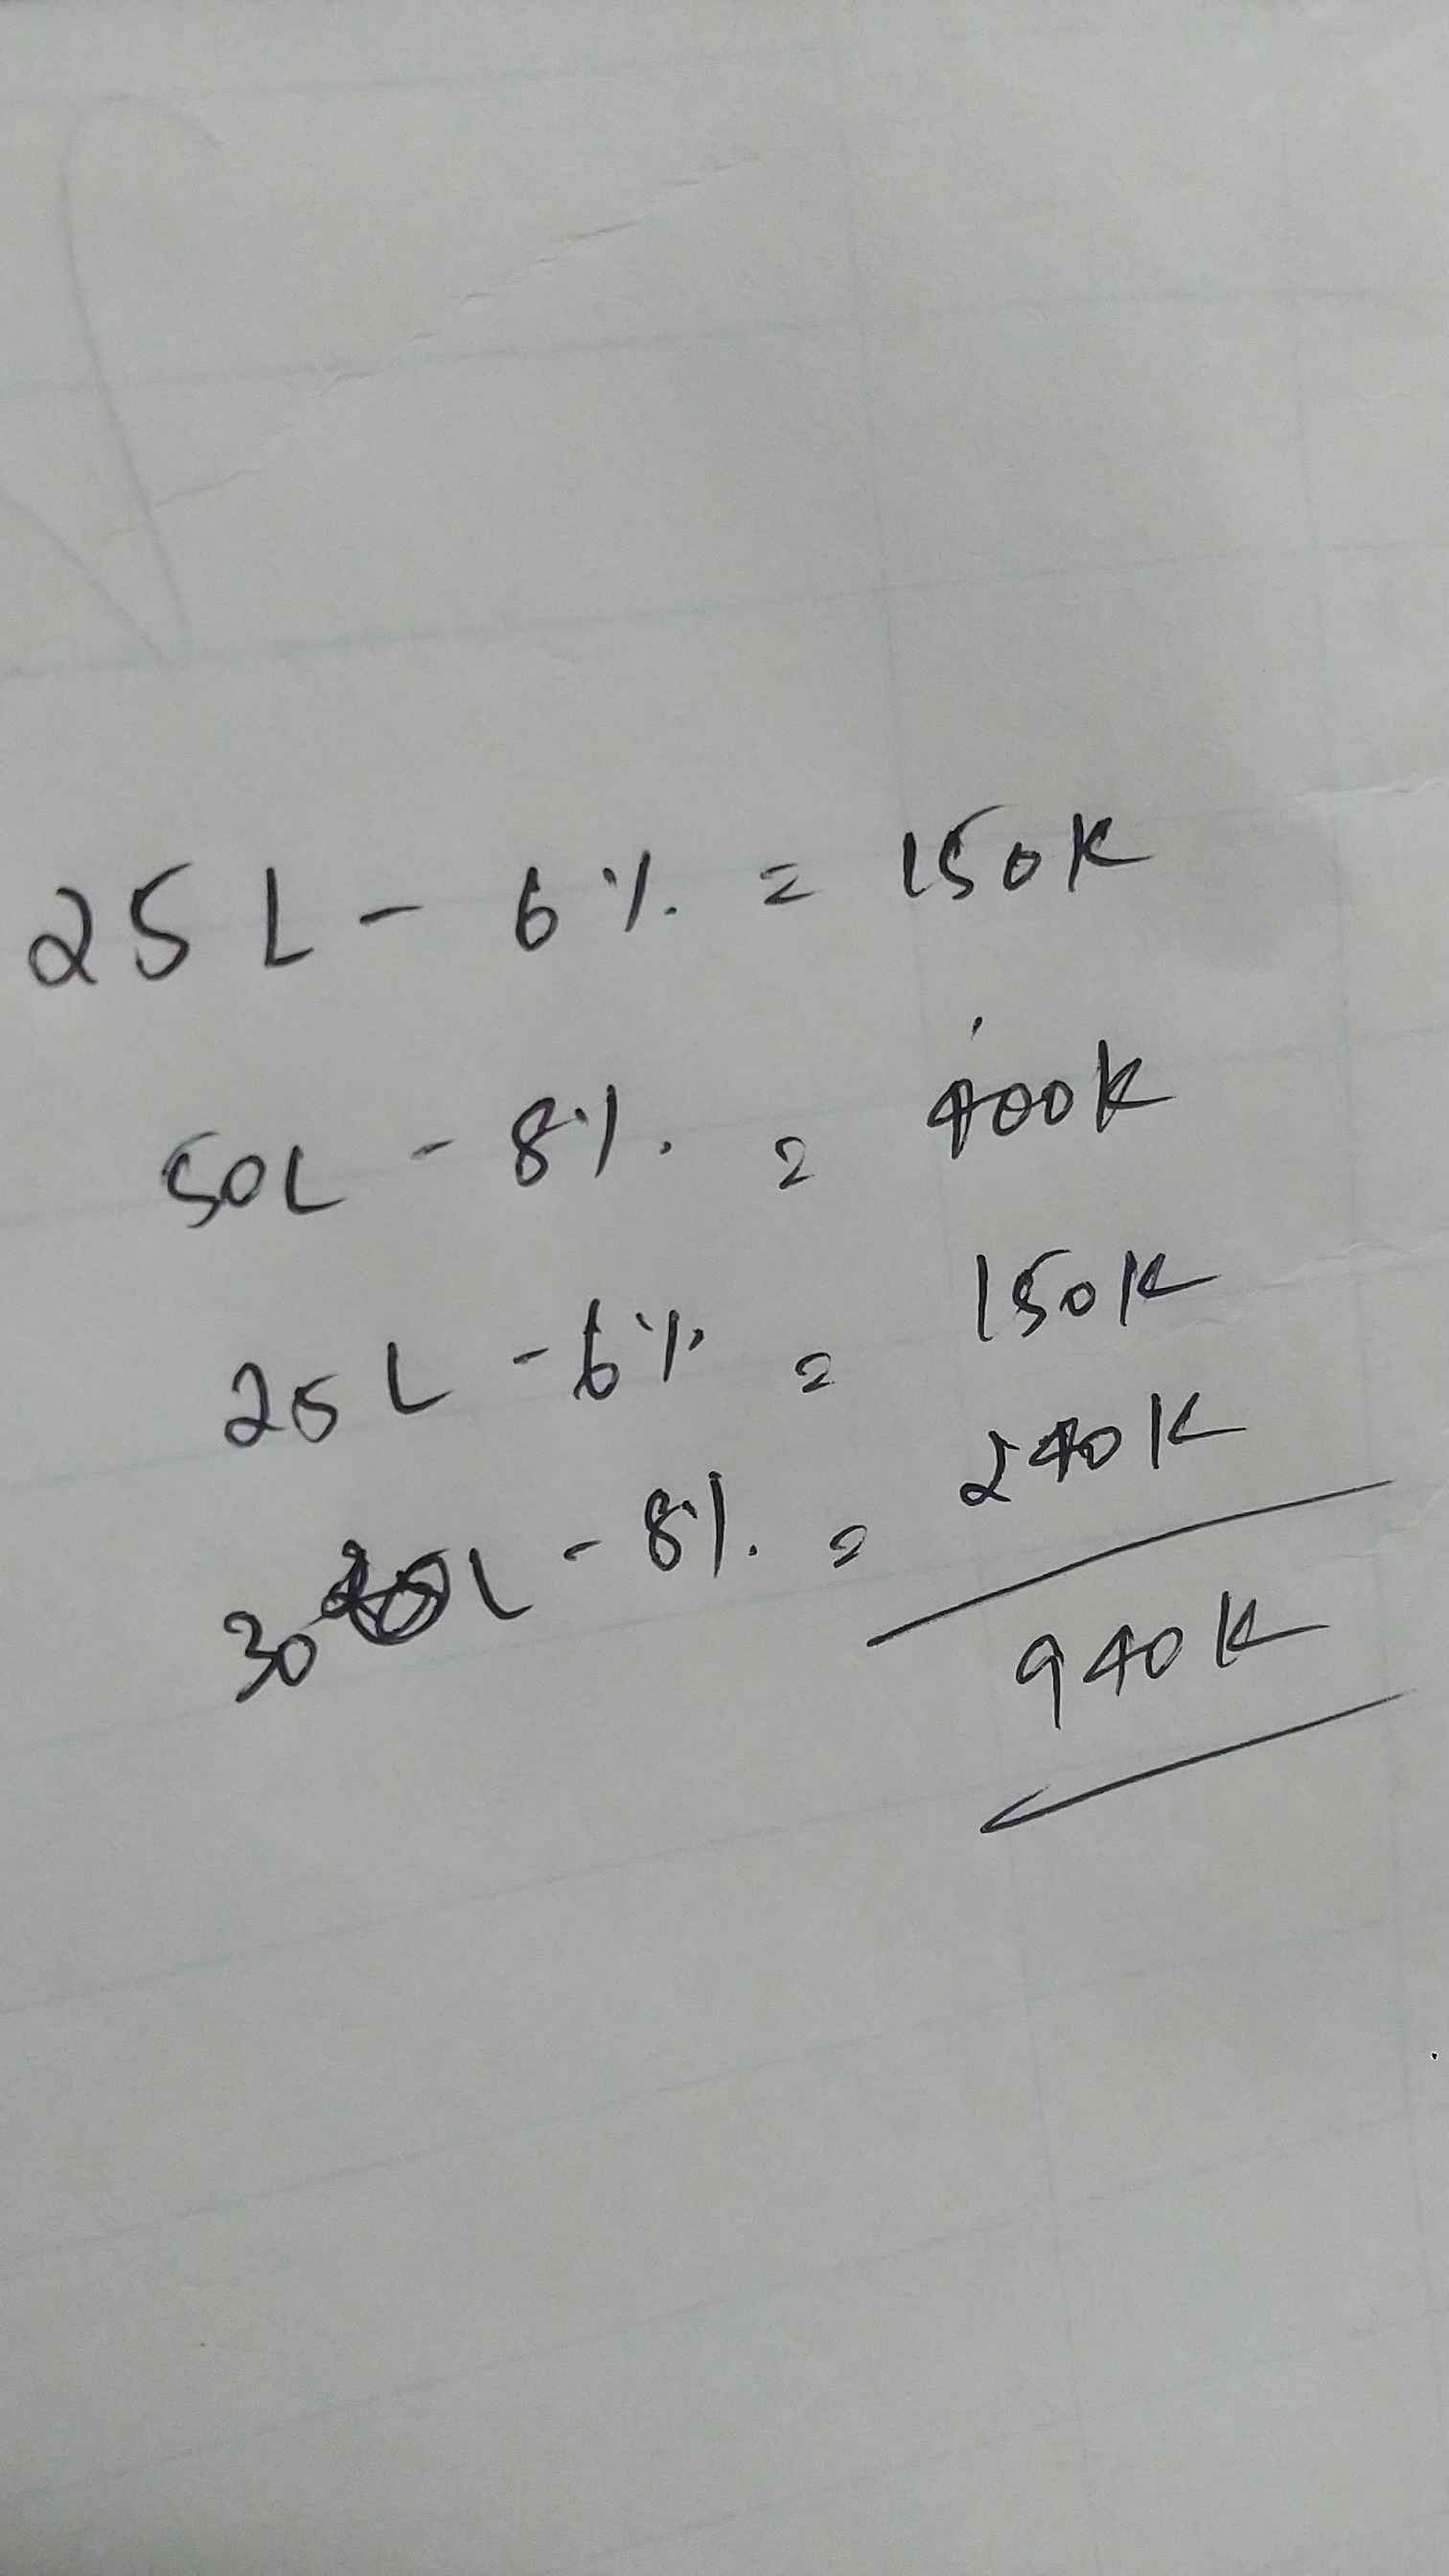 25 L - 6% = 150K
50L - 8% = 400K
25 L - 6% = 150K
30 L - 8% = 240K
940K